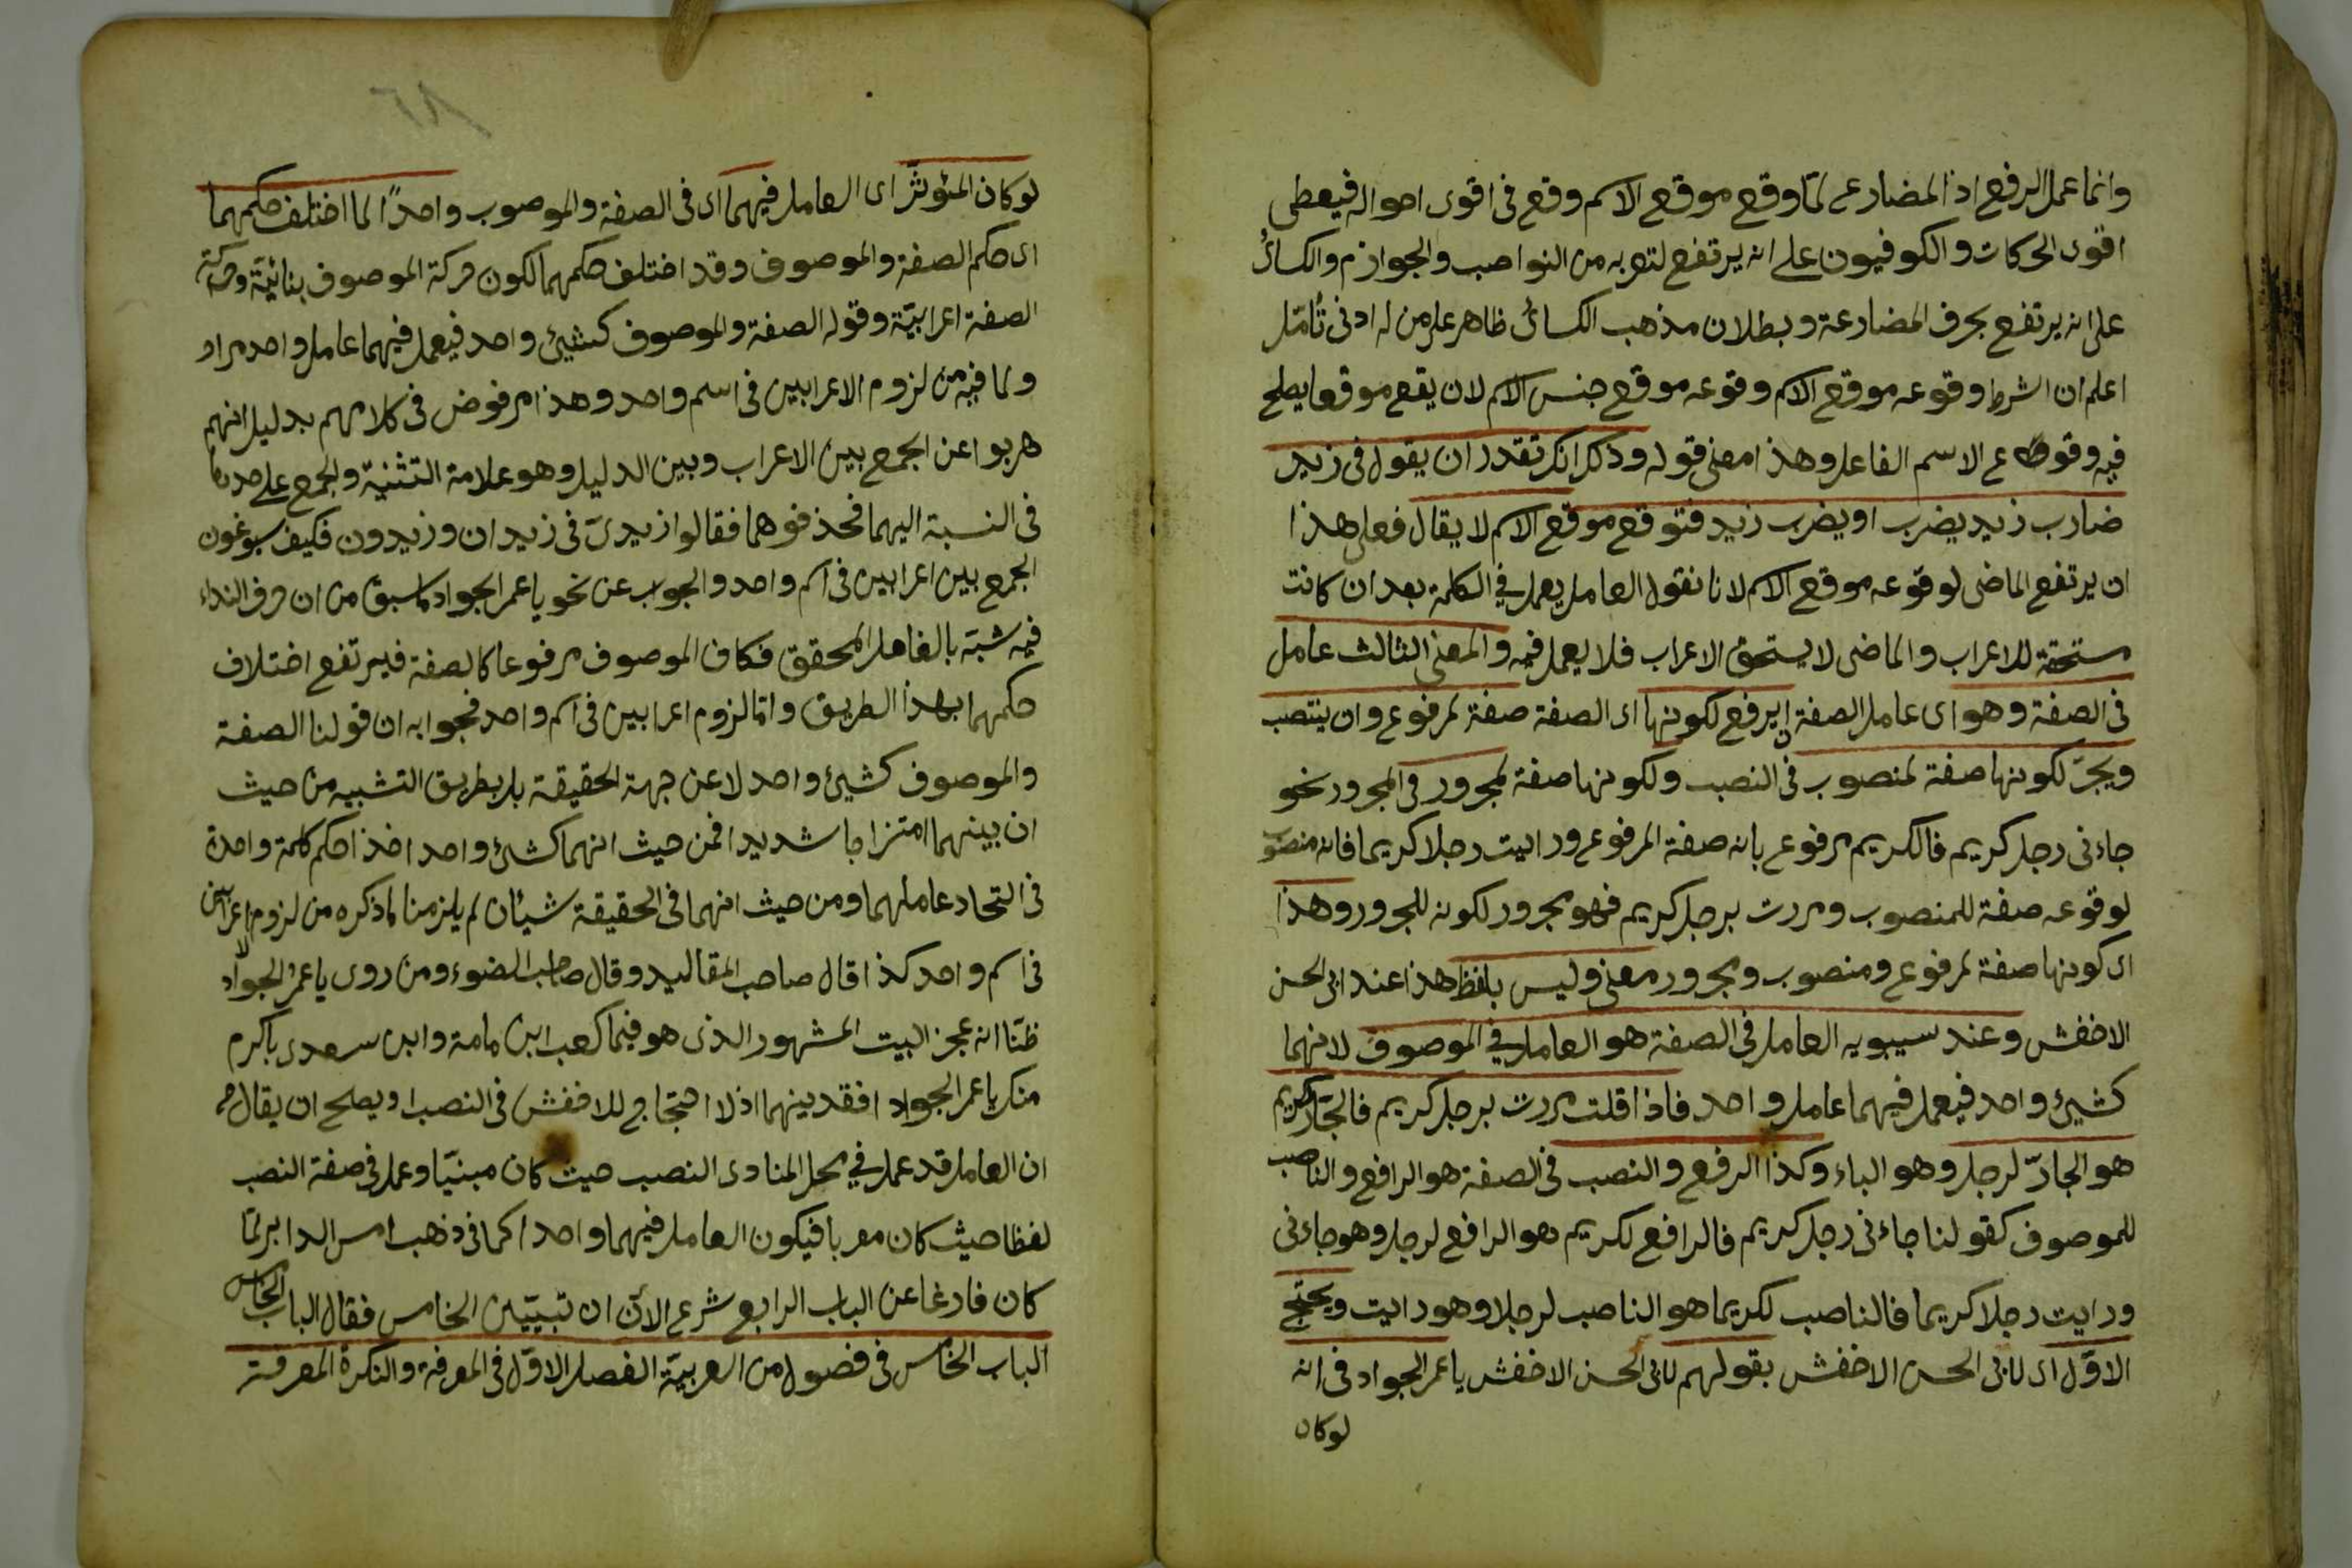 وانما عمل الرفع اذ المضارع لما وقع موقع الاسم وقع فى اقوى احواله فيعطى
اقوى الحركات والكوفيون على انه يرتفع لتعريه من النواصب والجوازم والكسائى
على انه يرتفع بحرف المضارعة وبطلان مذهب الكسائى ظاهر على من له ادنى تأمّل
اعلم ان الشرط وقوعه موقع الاسم وقوعه موقع جنس الاسم لان يقع موقعا يصلح
فيه وقوع الاسم الفاعل وهذا معنى قوله وذكر انك تقدر ان يقول فى زيد
ضارب زيد يضرب او يضرب زيد فتوقع موقع الاسم لا يقال فعلى هذا
ان يرتفع الماضى لوقوعه موقع الاسم لانا نقول العامل يعمل فى الكلمة بعد ان كانت
مستحقة للاعراب والماضى لا يستحق الاعراب فلا يعمل فيه والمعنى الثالث عامل
فى الصفة وهو اى عامل الصفة ان يرفع لكونها اى الصفة صفة لمرفوع وان ينتصب
ويجرّ لكونها صفة لمنصوب فى النصب ولكونها صفة لمجرور فى المجرور نحو
جاءنى رجل كريم فالكريم مرفوع بانه صفة المرفوع ورايت رجلا كريما فانه منصوب
لوقوعه صفة للمنصوب ومررت برجل كريم فهو مجرور لكونه للمجرور وهذا
اى كونها صفة لمرفوع ومنصوب ومجرور معنى وليس بلفظ هذا عند ابى الحسن
الاخفش وعند سيبويه العامل فى الصفة هو العامل فى الموصوف لانهما
كشيئ واحد فيعمل فيهما عامل واحد فاذا قلت مررت برجل كريم فالجارّ لكريم
هو الجارّ لرجل وهو الباء وكذا الرفع والنصب فى الصفة هو الرافع والناصب
للموصوف كقولنا جاءنى رجل كريم فالرافع لكريم هو الرافع لرجل وهو جاءنى
ورايت رجلا كريما فالناصب لكريما هو الناصب لرجلا وهو رايت ويحتج
الاوّل اى لابى الحسن الاخفش بقولهم لابى الحسن الاخفش يا عمر الجواد فى انه
لوكان
لوكان المئوثّر اى العامل فيهما اى فى الصفة والموصوب واحدًا لما اختلف حكمهما
اى حكم الصفة والموصوف وقد اختلف حكمهما لكون حركة الموصوف بنائيّة وحركة
الصفة اعرابيّة وقوله الصفة والموصوف كشيئ واحد فيعمل فيهما عامل واحد مراد
ولما فيه من لزوم الاعرابين فى اسم واحد وهذا مرفوض فى كلامهم بدليل انهم
هربوا عن الجمع بين الاعراب وبين الدليل وهو علامة التثنية والجمع على حدها
فى النسبة اليهما فحذفوهما فقالوا زيدىّ فى زيدان وزيدون فكيف يسوغون
الجمع بين اعرابين فى اسم واحد والجواب عن نحو يا عمر الجواد كما سبق من ان حرف النداء
فيه شبّه بالفاعل المحقق فكان الموصوف مرفوعا كالصفة فيرتفع اختلاف
حكمهما بهذا الطريق واما لزوم اعرابين فى اسم واحد فجوابه ان قولنا الصفة
والموصوف كشيئ واحد لا عن جهة الحقيقة بل بطريق التشبيه من حيث
ان بينهما امتزاجا شديدا فمن حيث انهما كشئ واحد اخذا حكم كلمة واحدة
فى اتحاد عاملهما ومن حيث انهما فى الحقيقة شيئان لم يلزمنا لما ذكره من لزوم اعرابين
فى اسم واحد كذا قال صاحب المقاليد وقال صاحب الضوء ومن روى يا عمرُ الجواد لا
ظنّا انه عجز البيت المشهور الذى هو فيما كعب ابن مامة وابن سعدى باكرم
منك يا عمر الجوادا فقد بينهما اذ لا احتجاج للاخفش فى النصب اويصلح ان يقال
ان العامل قد عمل فى محل المنادى النصب حيث كان مبنيّا وعمل فى صفة النصب
لفظا حيث كان معربا فيكون العامل فيهما واحدا كما فى ذهب امس الدابر لمّا
كان فارغا عن الباب الرابع شرع الآن ان تبيّين الخامس فقال الباب الخامس
الباب الخامس فى فصول من العربيّة الفصل الاوّل فى المعرفة والنكرة المعرفة